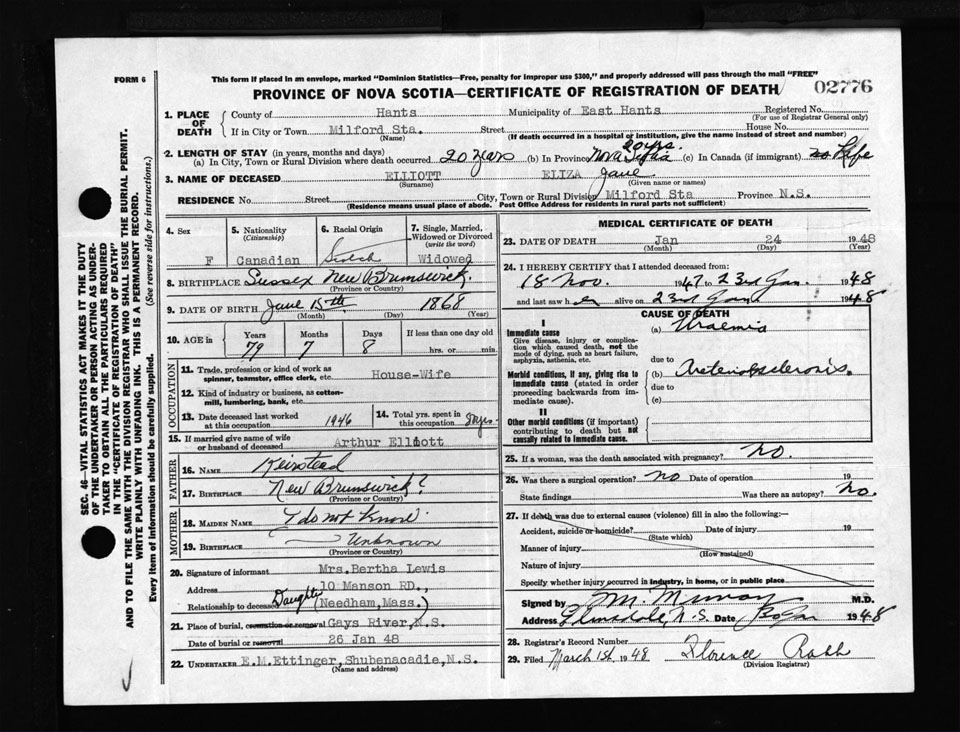 FORM 6
This form if placed in an envelope, marked "Dominion Statistics—Free, penalty for improper use $300," and properly addressed will pass through the mail "FREE"
PROVINCE OF NOVA SCOTIA—CERTIFICATE OF REGISTRATION OF DEATH
02776
1. PLACE OF DEATH
County of Hants Municipality of East Hants Registered No.
(For use of Registrar General only)
If in City or Town Milford Sta. Street House No.
(Name) (If death occurred in a hospital or institution, give the name instead of street and number)
2. LENGTH OF STAY (in years, months and days)
(a) In City, Town or Rural Division where death occurred 20 years (b) In Province Nova Scotia (c) In Canada (if immigrant) Life
3. NAME OF DECEASED ELLIOTT ELIZA Jane
(Surname) (Given name or names)
RESIDENCE No. Street City, Town or Rural Division Milford Sta Province N.S.
(Residence means usual place of abode. Post Office Address for residents in rural parts not sufficient)
4. Sex F
5. Nationality (Citizenship) Canadian
6. Racial Origin Scotch
7. Single, Married, Widowed or Divorced (write the word) Widowed
8. BIRTHPLACE Sussex New Brunswick.
(Province or Country)
9. DATE OF BIRTH June 15th 1868
(Month) (Day) (Year)
10. AGE in Years Months Days If less than one day old
79 7 8 hrs. or min.
OCCUPATION
11. Trade, profession or kind of work as spinner, teamster, office clerk, etc. House-Wife
12. Kind of industry or business, as cotton-mill, lumbering, bank, etc.
13. Date deceased last worked at this occupation 1946
14. Total yrs. spent in this occupation
15. If married give name of wife or husband of deceased Arthur Elliott
FATHER
16. NAME Keirstead
17. BIRTHPLACE New Brunswick?
(Province or Country)
MOTHER
18. MAIDEN NAME I do not know.
19. BIRTHPLACE Unknown
(Province or Country)
20. Signature of informant Mrs.Bertha Lewis
Address 10 Manson RD.,
Relationship to deceased Daughter (Needham,Mass.)
21. Place of burial, cremation or removal Gays River,N.S.
Date of burial or removal 26 Jan 48
22. UNDERTAKER E.M.Ettinger,Shubenacadie,N.S.
(Name and address)
MEDICAL CERTIFICATE OF DEATH
23. DATE OF DEATH Jan 24 1948
(Month) (Day) (Year)
24. I HEREBY CERTIFY that I attended deceased from:
18 Nov. 1947 to 23rd Jan. 1948
and last saw her alive on 23rd Jan 1948
CAUSE OF DEATH
I
Immediate cause
Give disease, injury or complication which caused death, not the mode of dying, such as heart failure, asphyxia, asthenia, etc.
(a) Uraemia
due to
Morbid conditions, if any, giving rise to immediate cause (stated in order proceeding backwards from immediate cause).
(b) Arteriosclerosis.
due to
(c)
II
Other morbid conditions (if important) contributing to death but not causally related to immediate cause.
25. If a woman, was the death associated with pregnancy? no.
26. Was there a surgical operation? no Date of operation 19
State findings Was there an autopsy? no.
27. If death was due to external causes (violence) fill in also the following:—
Accident, suicide or homicide? Date of injury 19
(State which)
Manner of injury
(How sustained)
Nature of injury
Specify whether injury occurred in industry, in home, or in public place
Signed by M. Murray M.D.
Address Elmsdale, N.S. Date 1948
28. Registrar's Record Number
29. Filed March 1st 1948 Florence Robb
(Division Registrar)
SEC. 46—VITAL STATISTICS ACT MAKES IT THE DUTY
OF THE UNDERTAKER OR PERSON ACTING AS UNDER-
TAKER TO OBTAIN ALL THE PARTICULARS REQUIRED
IN THE "CERTIFICATE OF REGISTRATION OF DEATH"
AND TO FILE THE SAME WITH THE DIVISION REGISTRAR WHO SHALL ISSUE THE BURIAL PERMIT.
WRITE PLAINLY WITH UNFADING INK. THIS IS A PERMANENT RECORD.
Every item of information should be carefully supplied. (See reverse side for instructions.)